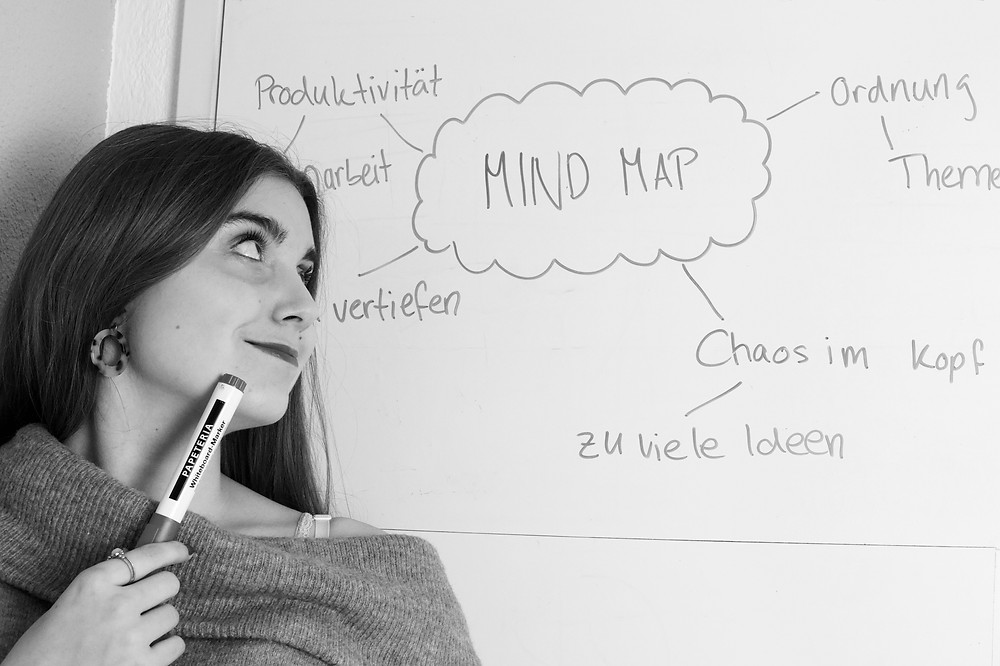 Produktivität
MIND MAP
Ordnung
narbeit
Theme
vertiefen
Chaos im Kopf
zu viele Ideen
PAPETERIA
Whiteboard-Marker